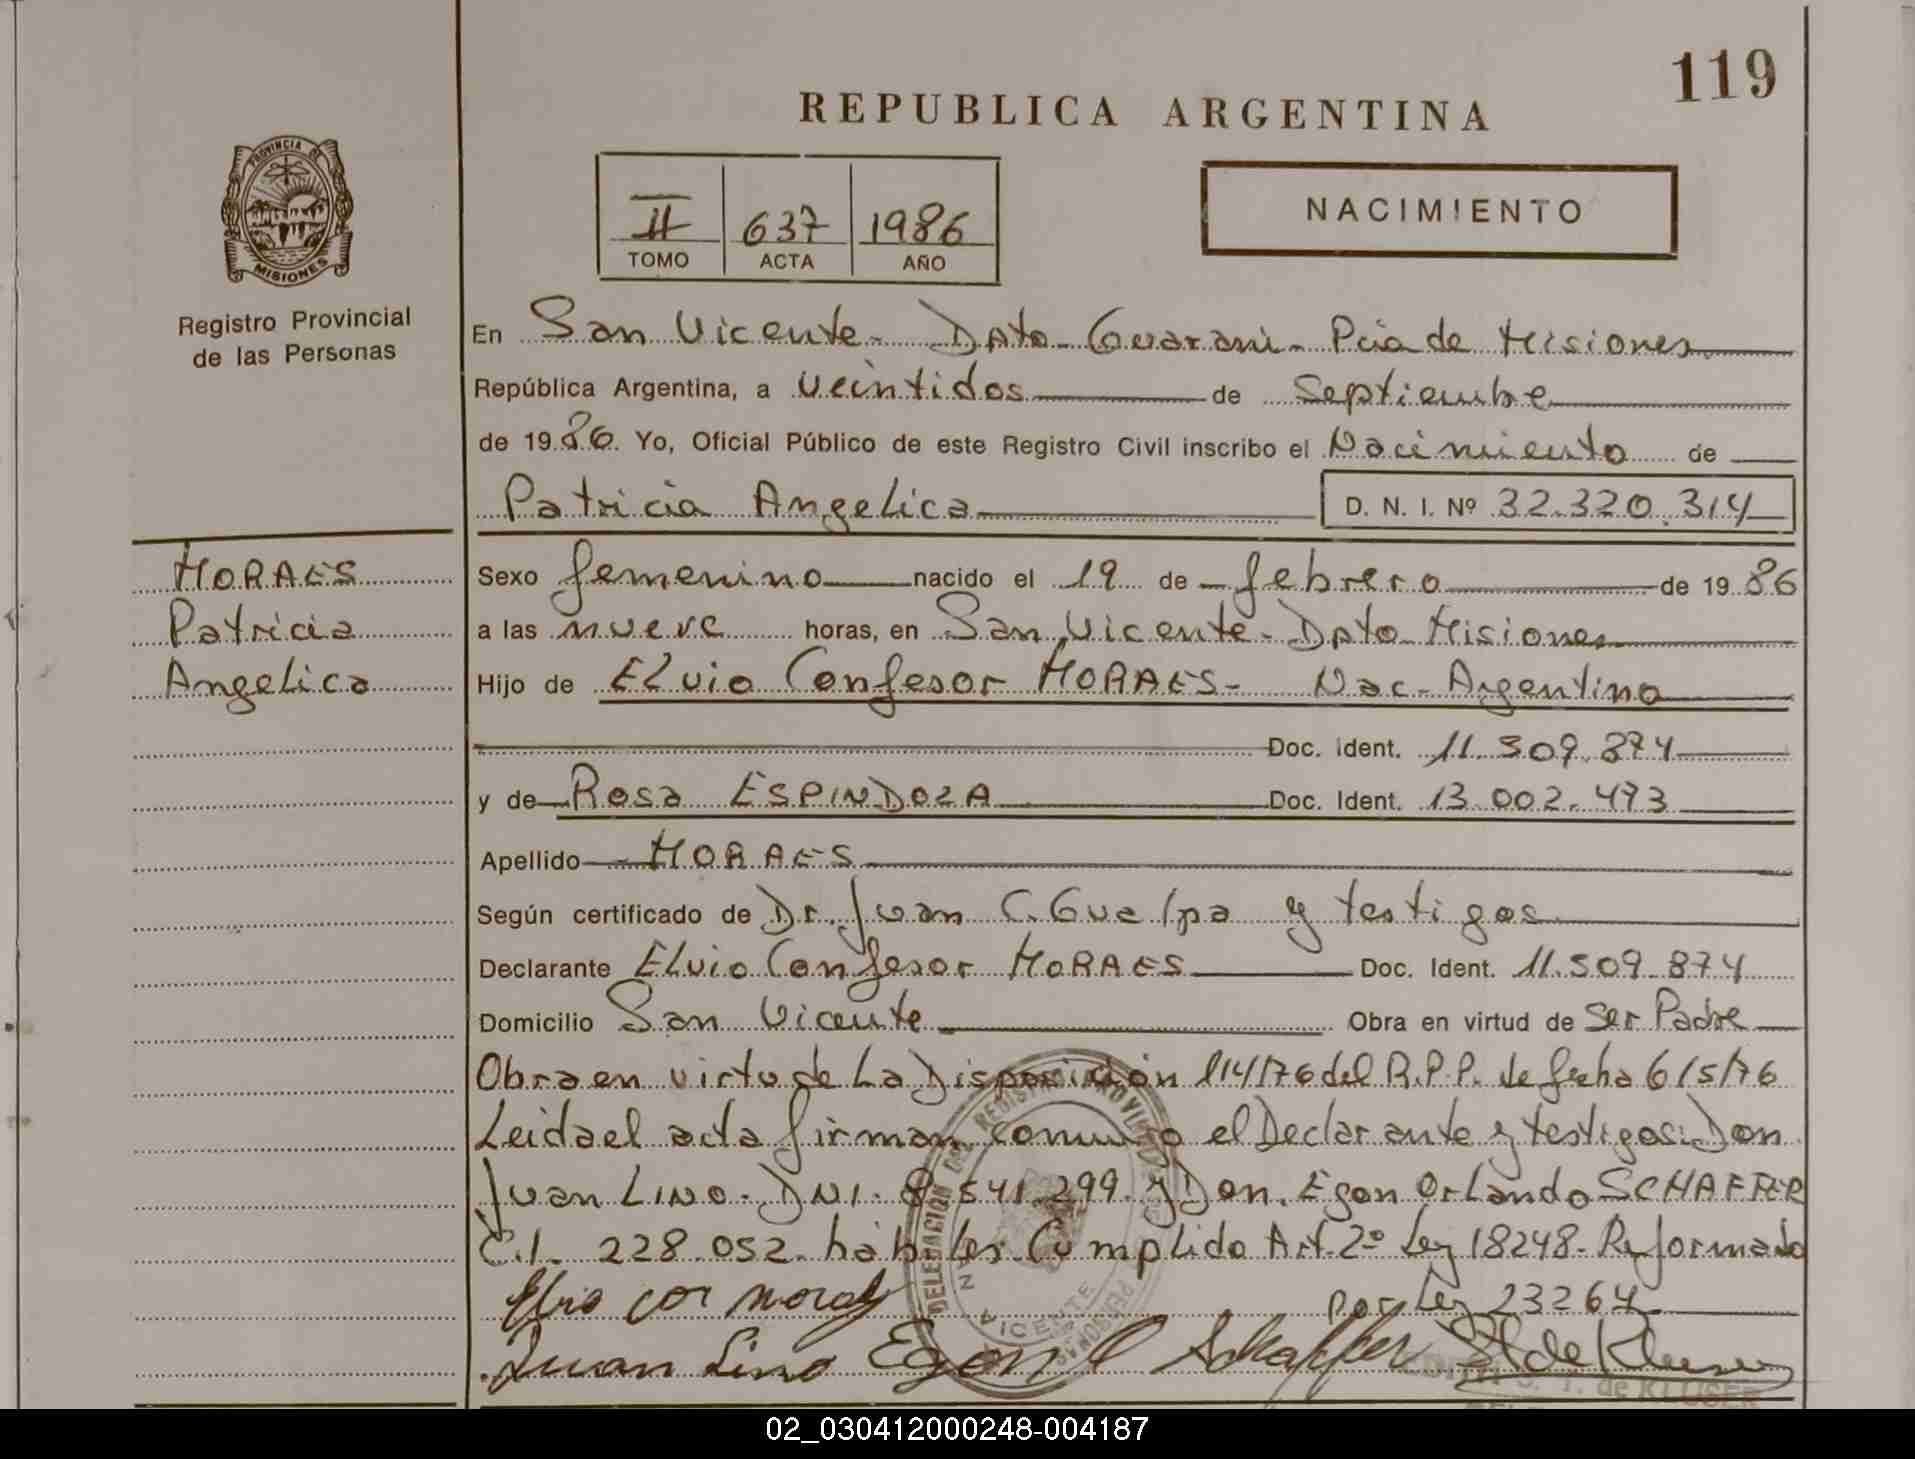 119
REPUBLICA ARGENTINA
PROVINCIA DE
MISIONES
Registro Provincial
de las Personas
NACIMIENTO
II 637 1986
TOMO ACTA AÑO
En San Vicente - Dpto - Guarani - Pcia de Misiones
República Argentina, a veintidos de Septiembre
de 1986. Yo, Oficial Público de este Registro Civil inscribo el Nacimiento de
Patricia Angelica D. N. I. Nº 32.320.314
MORAES
Patricia
Angelica
Sexo femenino nacido el 19 de febrero de 1986
a las nueve horas, en San Vicente - Dpto Misiones
Hijo de ELvio Confesor MORAES - Nac - Argentino
Doc. Ident. 11.509.874
y de Rosa ESPINDOLA Doc. Ident. 13.002.473
Apellido MORAES
Según certificado de Dr. Juan C. Guelpa y testigos
Declarante ELvio Confesor MORAES Doc. Ident. 11.509.874
Domicilio San Vicente Obra en virtud de Ser Padre
Obra en virtu de La Disposición 114/76 del R.P.P. de fecha 6/5/76
Leida el acta firman conmigo el Declarante y testigos: Don
Juan LINO - DNI - 8.541.299 - y Don. Egon Orlando SCHAFFER
C.I. 228.052 - habiles Cumplido Art. 2º Ley 18248 - Reformado
por Ley 23264
Elvio con moraes
Juan Lino Egon O Schaffer
DELEGACION DEL REGISTRO PROVINCIAL
PERSONAS
VICENTE
de KLUSER
02_030412000248-004187